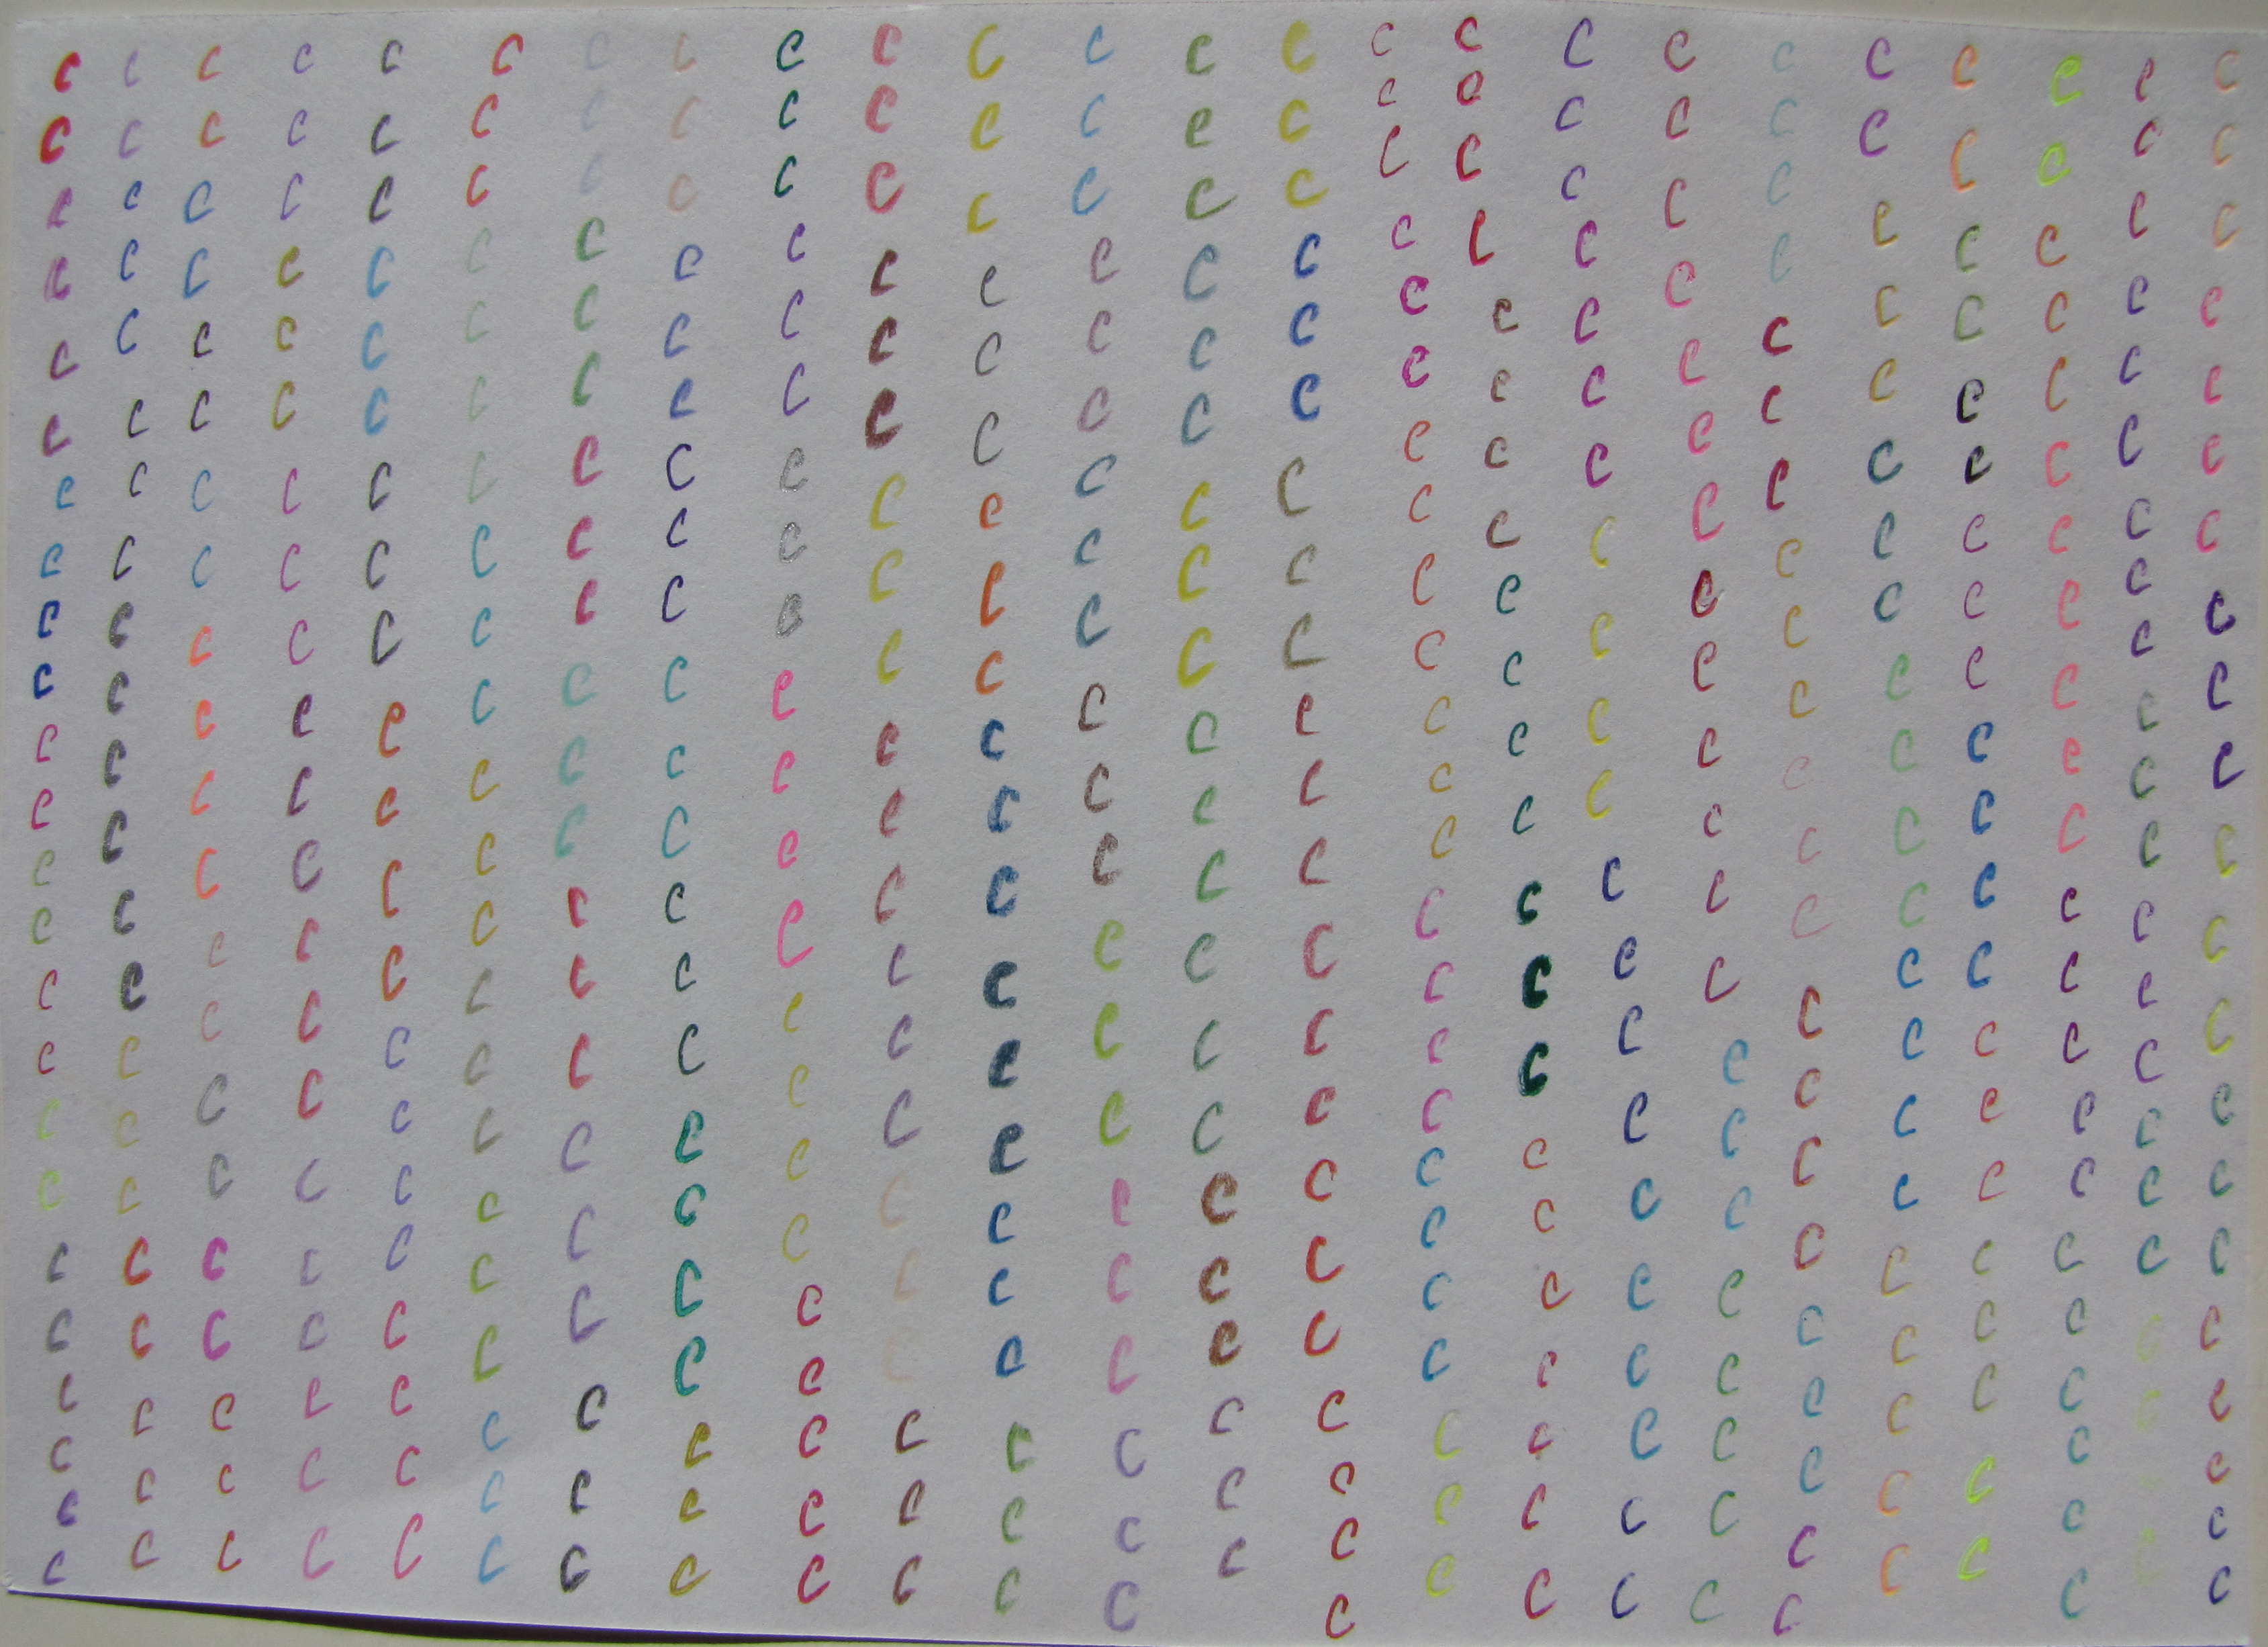 c c c c c c c c c c c c c c c c c c c c c c c c
c c c c c c c c c c c c c c c c c c c c c c c c
c c c c c c c c c c c c c c c c c c c c c c c c
c c c c c c c c c c c c c c c c c c c c c c c c
c c c c c c c c c c c c c c c c c c c c c c c c
c c c c c c c c c c c c c c c c c c c c c c c c
c c c c c c c c c c c c c c c c c c c c c c c c
c c c c c c c c c c c c c c c c c c c c c c c c
c c c c c c c c c c c c c c c c c c c c c c c c
c c c c c c c c c c c c c c c c c c c c c c c c
c c c c c c c c c c c c c c c c c c c c c c c c
c c c c c c c c c c c c c c c c c c c c c c c c
c c c c c c c c c c c c c c c c c c c c c c c c
c c c c c c c c c c c c c c c c c c c c c c c c
c c c c c c c c c c c c c c c c c c c c c c c c
c c c c c c c c c c c c c c c c c c c c c c c c
c c c c c c c c c c c c c c c c c c c c c c c c
c c c c c c c c c c c c c c c c c c c c c c c c
c c c c c c c c c c c c c c c c c c c c c c c c
c c c c c c c c c c c c c c c c c c c c c c c c
c c c c c c c c c c c c c c c c c c c c c c c c
c c c c c c c c c c c c c c c c c c c c c c c c